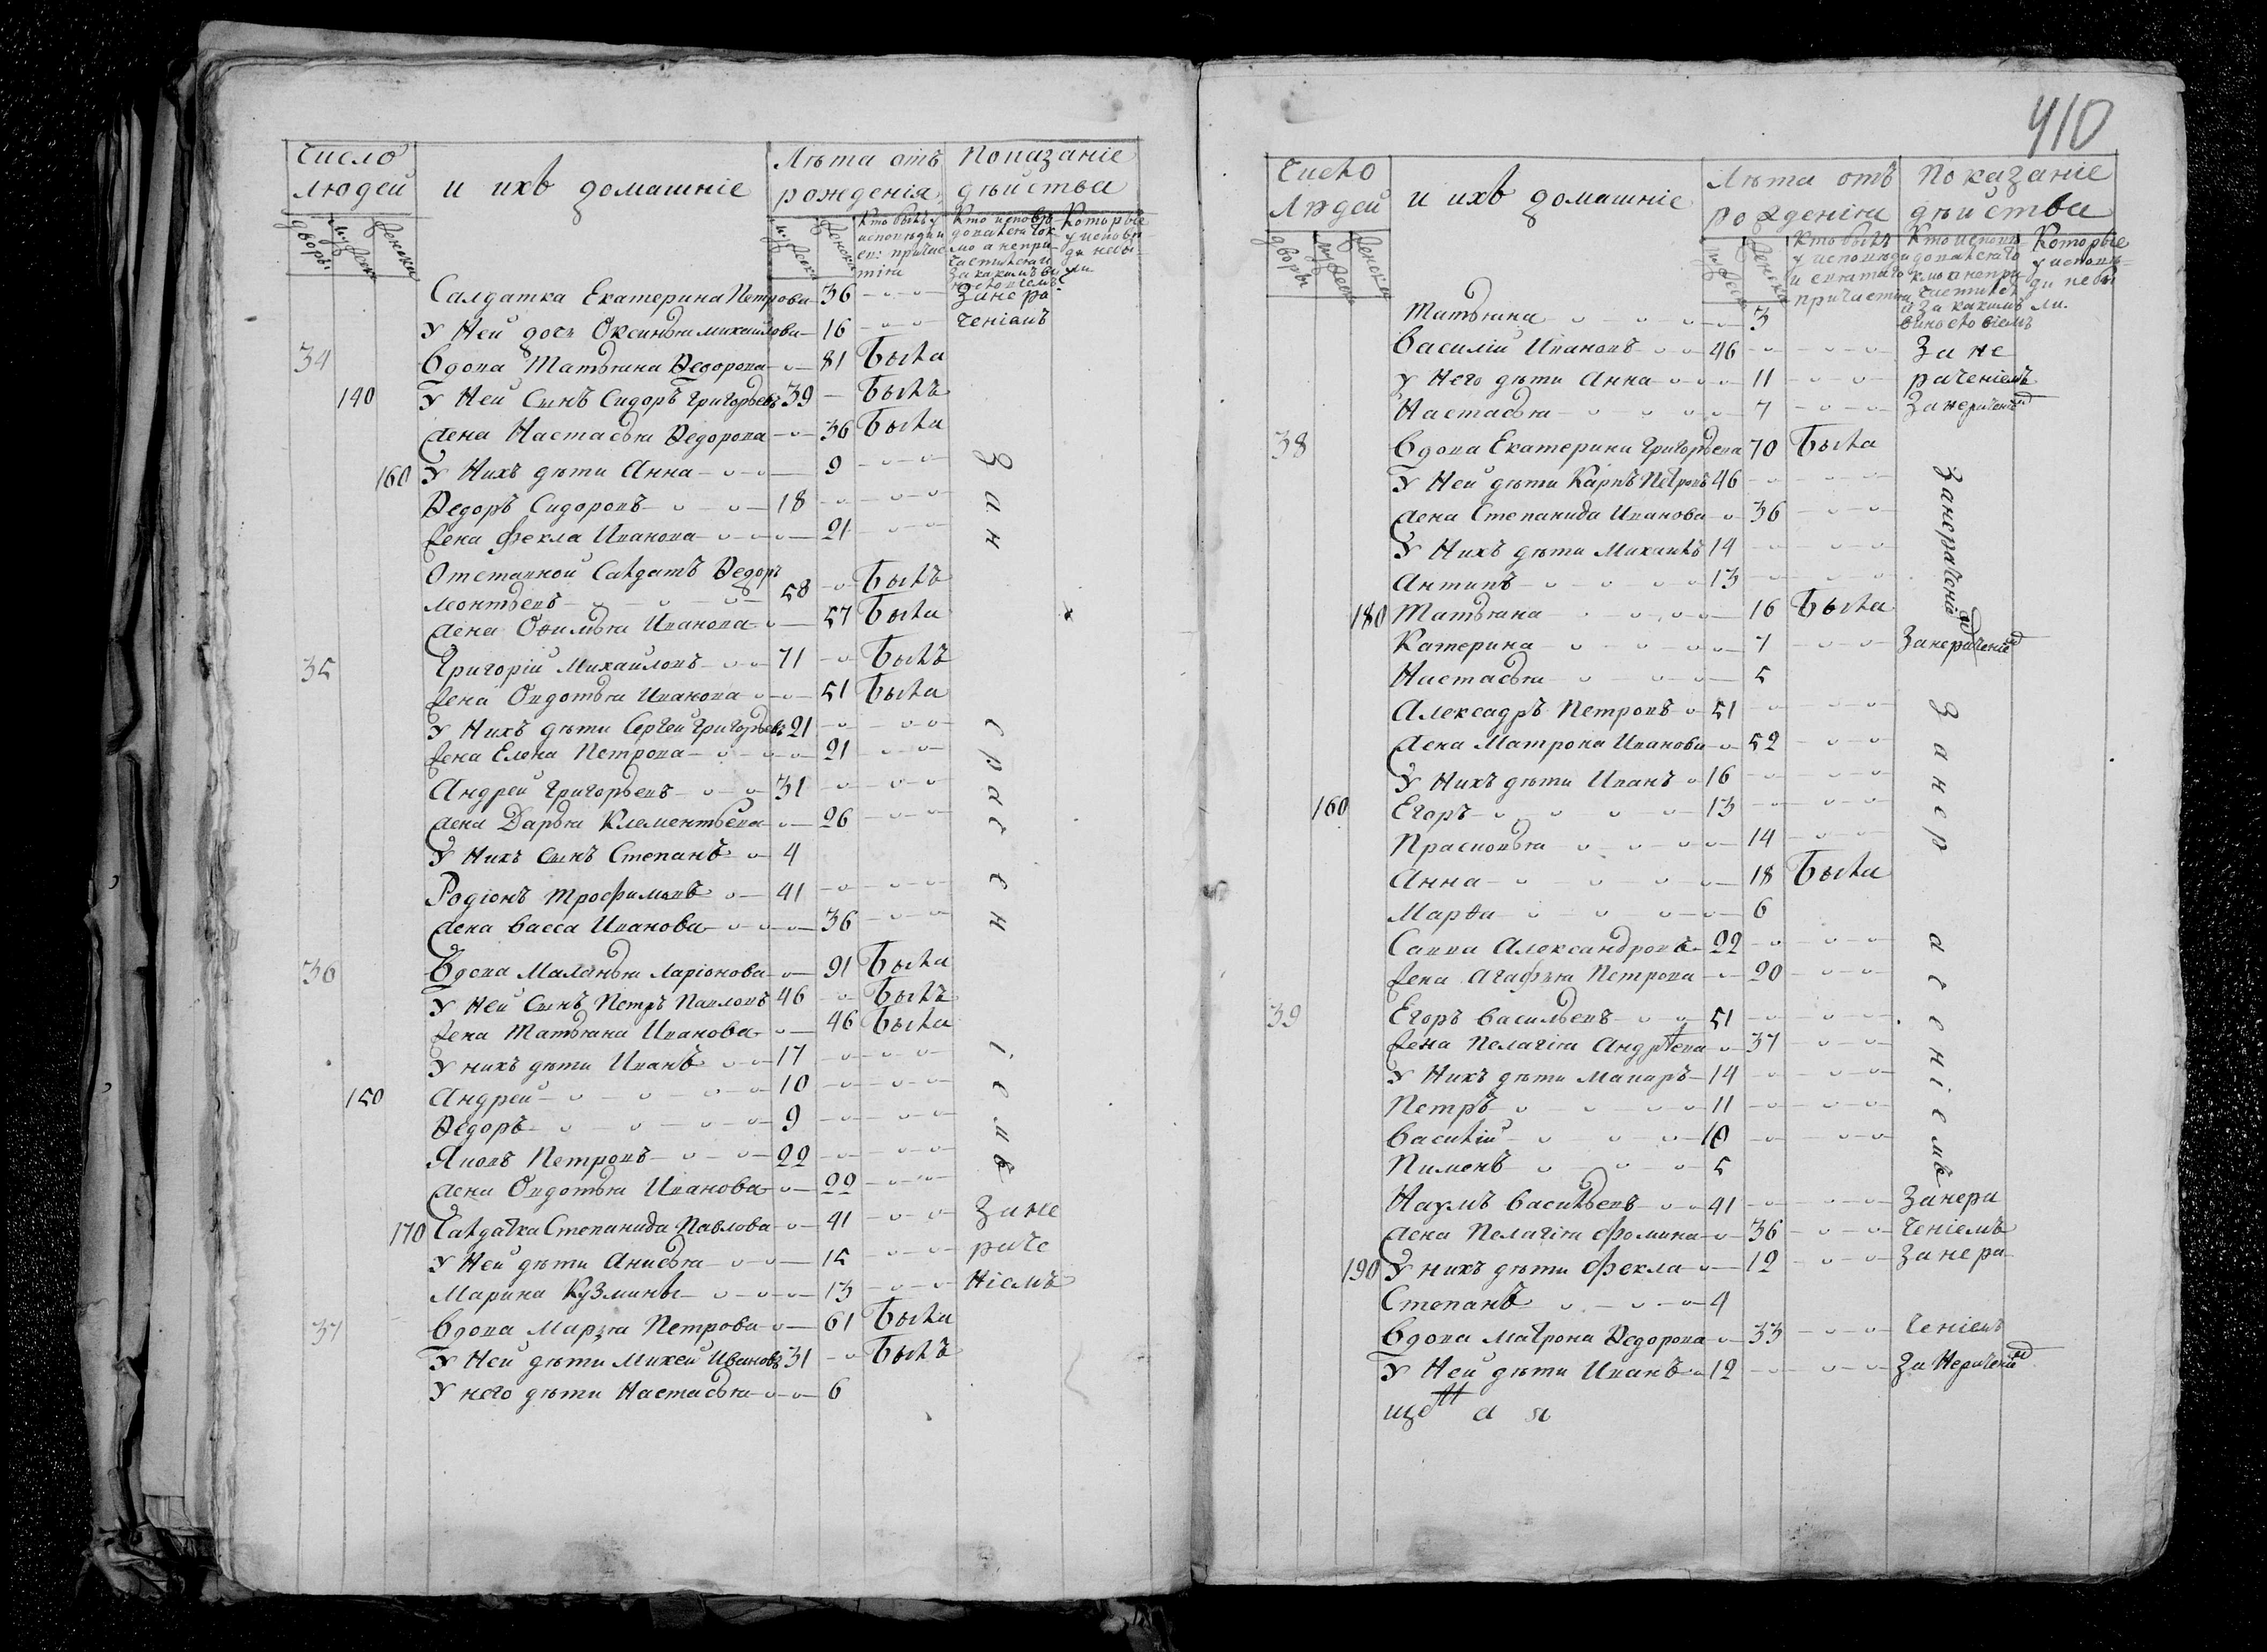 Число людей
и ихъ домашніе
Лѣта отъ рожденія
Показаніе дѣиства
дворы
муѯеск
женска
муѯеск
женска
Кто былъ у исповѣди и св: причастія
Кто исповѣдовался ток мо а непричастился и за какимъ виннословіемъ
Которые у исповѣди небыли
Салдатка Екатерина Петрова 36 Зане ра
У Ней дочь Оксинья михаилова 16 ченіемъ
34 Вдова Татьяна Ѳедорова 81 Была
140 У Ней Сынъ Сидоръ Григорьевъ 39 Былъ
Жена Настасья Ѳедорова 36 Была
160 У Нихъ дѣти Анна 9
Ѳедоръ Сидоровъ 18
Жена Фекла Иванова 21
Отставной Салдатъ Ѳедоръ
Леонтьевъ 58 Былъ
Жена Офимья Иванова 57 Была
35 Григоріи Михаиловъ 71 Былъ
Жена Овдотья Иванова 51 Была
У Нихъ дѣти Сергеи Григорьевъ 21
Жена Елена Петрова 21
Андреи Григорьевъ 31
Жена Дарья Клементьева 26
У Нихъ Сынъ Степанъ 4
Родіонъ Трофимовъ 41
Жена Васса Иванова 36
36 Вдова Маланья Ларіонова 91 Была
У Ней Сынъ Петръ Павловъ 46 Былъ
Жена Татьяна Иванова 46 Была
У нихъ дѣти Иванъ 17
150 Андреи 10
Ѳедоръ 9
Яковъ Петровъ 22
Жена Овдотья Иванова 22
Занерачениіемъ
170 Салдатка Степанида Павлова 41 Зане
У Ней дѣти Анисья 15 раче
Марина Кузмины 13 Ніемъ
37 Вдова Марья Петрова 61 Была
У Ней дѣти Михеи Ивановъ 31 Былъ
У него дѣти Настасья 6
410
Число Людей
и ихъ домашніе
Лѣта отъ рожденія
Показаніе дѣиства
дворы
муѯеск
женска
муѯеск
женска
Кто былъ у исповѣди и святаго причастія
Кто исповѣдовался то кмо а непричастился и за какимъ винословіемъ
Которые у исповѣди небыли.
Татьяна 3
Василіи Ивановъ 46 За не
У Него дѣти Анна 11 раченіемъ
Настасья 7 Занераченіем
38 Вдова Екатерина Григорьева 70 Была
У Ней дѣти Карпъ Петровъ 46
Жена Степанида Иванова 36
У Нихъ дѣти Михаилъ 14
Антипъ 13
Занераченіем
180 Татьяна 16 Была
Катерина 7 Занераченіем
Настасья 5
Алексадръ Петровъ 51
Жена Матрона Иванова 52
У Нихъ дѣти Иванъ 16
160 Егоръ 13
Прасковья 14
Анна 18 Была
Марѳа 6
Савва Александровъ 22
Жена Агафья Петрова 20
39 Егоръ Васильевъ 51
Жена Пелагія Андрѣева 37
У Нихъ дѣти Макаръ 14
Петръ 11
Василіи 10
Пименъ 5
Занераченіемъ
Наумъ Васильевъ 41 Занера
Жена Пелагія Фомина 36 ченіемъ
190 У нихъ дѣти Фекла 12 Занера
Степанъ 4
Вдова Матрона Ѳедорова 33 ченіемъ
У Ней дѣти Иванъ 12 За Нераченіем